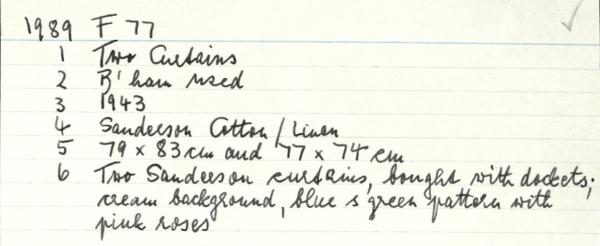 1989 F 77
1 Two Curtains
2 B'ham used
3 1943
4 Sanderson Cotton/Linen
5 79 x 83 cm and 77 x 74 cm
6 Two Sanderson curtains, bought with dockets;
cream background, blue & green pattern with
pink roses